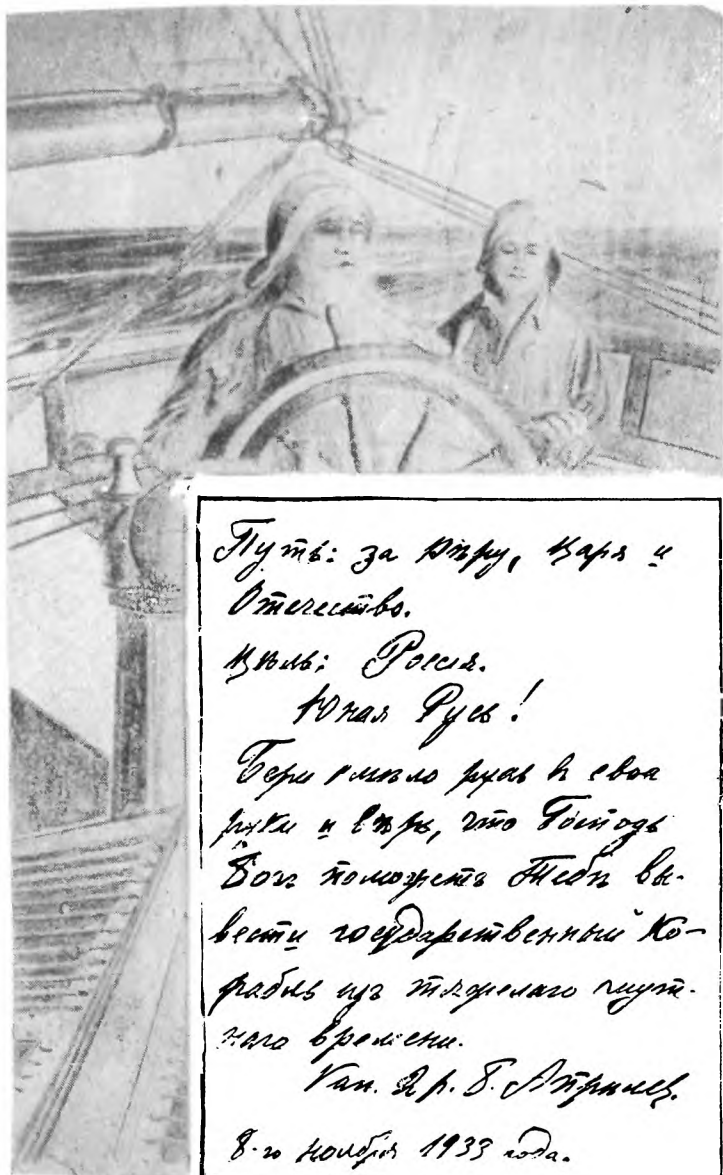 Путь: за Вѣру, Царя и
Отечество.
Цѣль: Россія.
Юная Русь!
Бери смѣло руль въ свои
руки и вѣрь, что Господь
Богъ поможетъ Тебѣ вы-
вести государственный Ко-
рабль изъ тяжелаго смут-
наго времени.
Кап. 2 р. Б. Апрѣлевъ.
8-го ноября 1933 года.